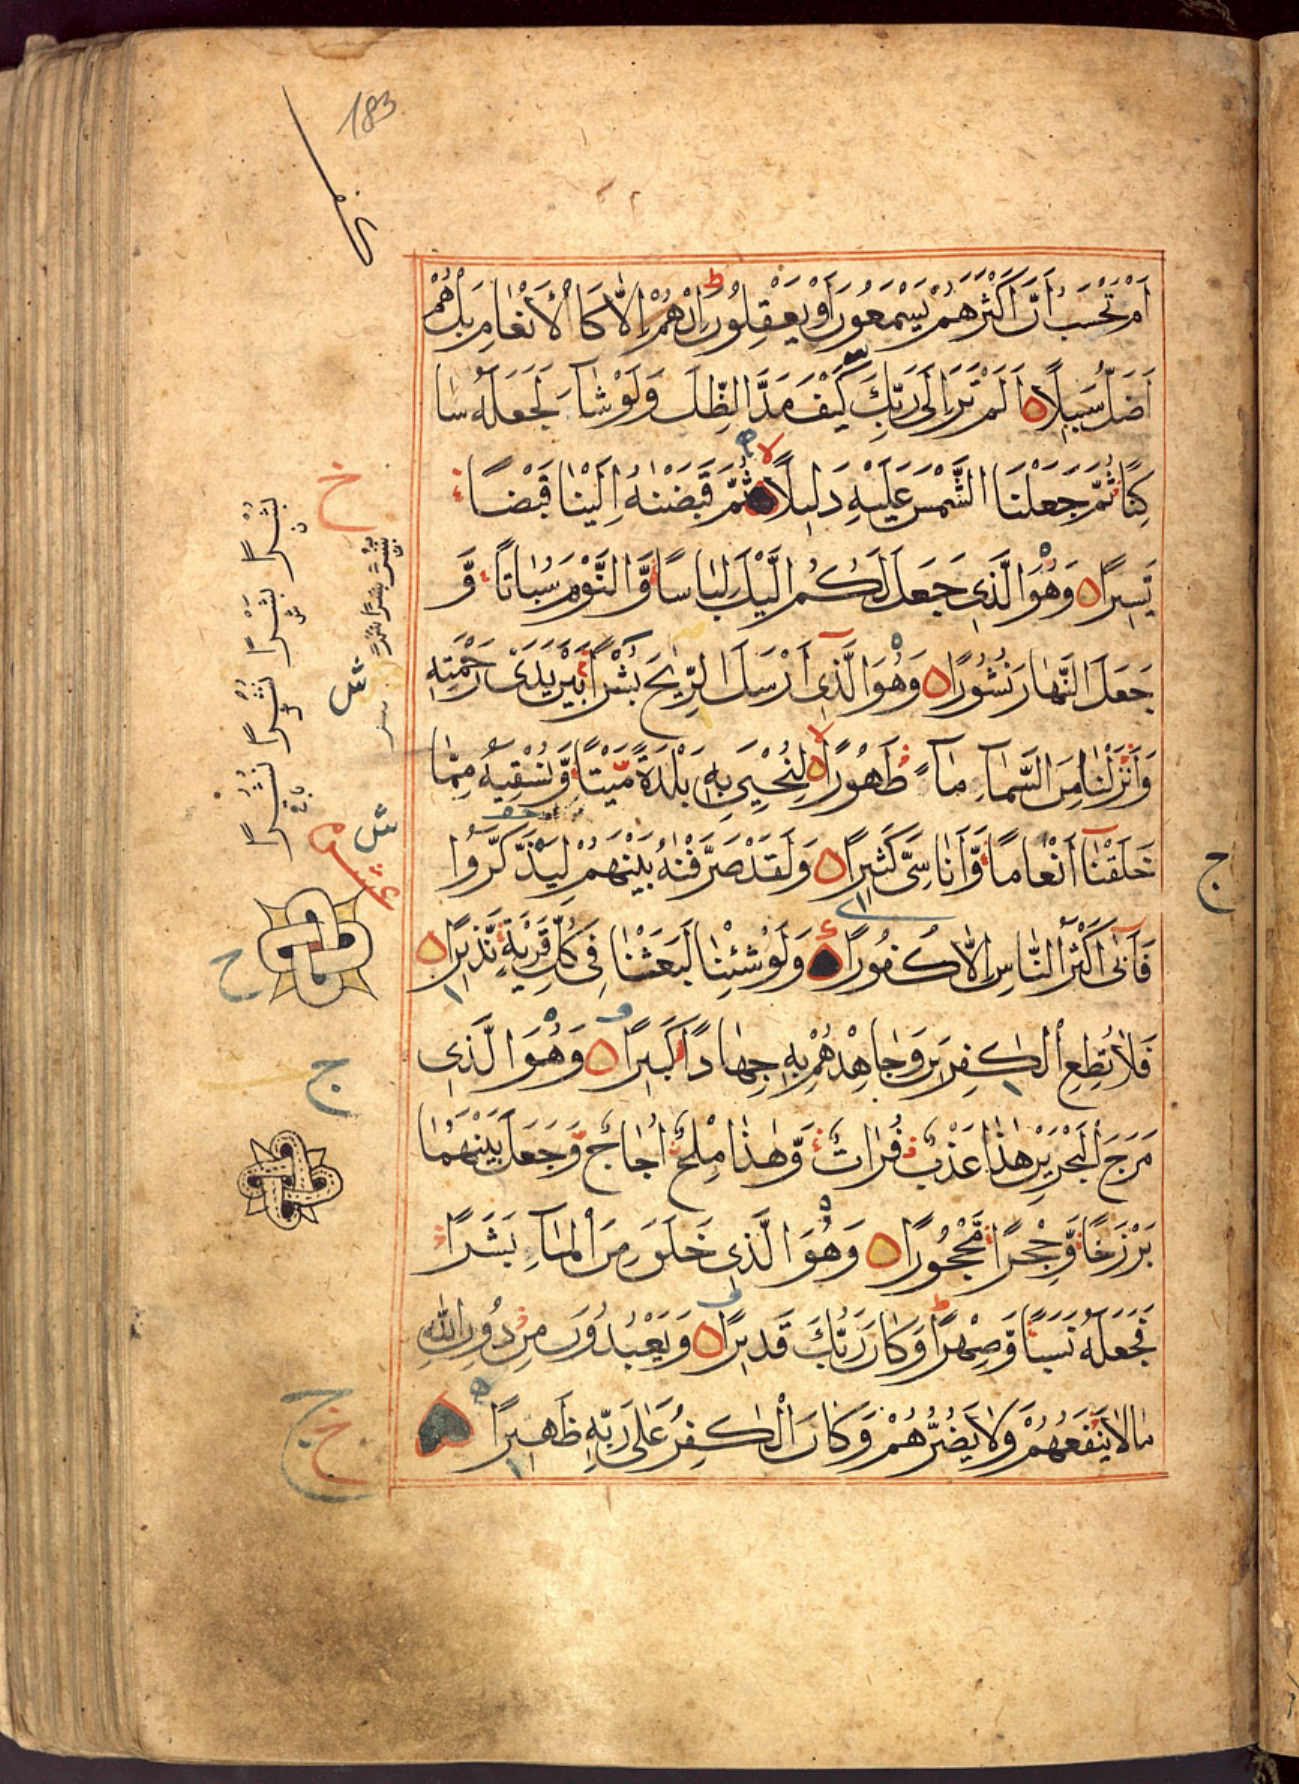 183
اَمْ تَحْسَبُ اَنَّ اَكْثَرَهُمْ يَسْمَعُونَ اَوْ يَعْقِلُونَ ط اِنْ هُمْ اِلَّا كَالْاَنْعَامِ بَلْ هُمْ
اَضَلُّ سَبِيلًا اَلَمْ تَرَ اِلٰى رَبِّكَ كَيْفَ مَدَّ الظِّلَّ وَلَوْ شَآءَ لَجَعَلَهُ سَا
كِنًا ثُمَّ جَعَلْنَا الشَّمْسَ عَلَيْهِ دَلِيلًا لا ثُمَّ قَبَضْنٰهُ اِلَيْنَا قَبْضًا
يَّسِيرًا وَهُوَ الَّذِى جَعَلَ لَكُمُ الَّيْلَ لِبَاسًا وَّالنَّوْمَ سُبَاتًا وَّ
جَعَلَ النَّهَارَ نُشُورًا وَهُوَ الَّذِى اَرْسَلَ الرِّيٰحَ بُشْرًا بَيْنَ يَدَىْ رَحْمَتِهِ
وَاَنْزَلْنَا مِنَ السَّمَآءِ مَآءً طَهُورًا لا لِنُحْيِىَ بِهِ بَلْدَةً مَّيْتًا وَّنُسْقِيَهُ مِمَّا
خَلَقْنَا اَنْعَامًا وَّاَنَاسِىَّ كَثِيرًا وَلَقَدْ صَرَّفْنٰهُ بَيْنَهُمْ لِيَذَّكَّرُوا
فَاَبٰى اَكْثَرُ النَّاسِ اِلَّا كُفُورًا وَلَوْ شِئْنَا لَبَعَثْنَا فِى كُلِّ قَرْيَةٍ نَّذِيرًا
فَلَا تُطِعِ الْكٰفِرِينَ وَجَاهِدْهُمْ بِهِ جِهَادًا كَبِيرًا وَهُوَ الَّذِى
مَرَجَ الْبَحْرَيْنِ هٰذَا عَذْبٌ فُرَاتٌ وَّهٰذَا مِلْحٌ اُجَاجٌ وَّجَعَلَ بَيْنَهُمَا
بَرْزَخًا وَّحِجْرًا مَّحْجُورًا وَهُوَ الَّذِى خَلَقَ مِنَ الْمَآءِ بَشَرًا
فَجَعَلَهُ نَسَبًا وَّصِهْرًا ط وَكَانَ رَبُّكَ قَدِيرًا وَيَعْبُدُونَ مِنْ دُونِ اللّٰهِ
مَا لَا يَنْفَعُهُمْ وَلَا يَضُرُّهُمْ وَكَانَ الْكٰفِرُ عَلٰى رَبِّهِ ظَهِيرًا
خ
ج
ج
بُشْرًا
نُشْرًا